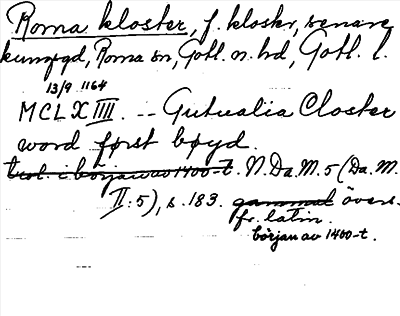 Roma kloster, f. kloster, senare
kungsgd, Roma sn, Gotl. n. hd, Gotl. l.
13/9 1164
MCLXIIII. -- Gutualia Closter
word først bøyd.
trol. i början av 1400-t. N.Da.M. 5 (Da.M.
II:5), s. 183. gammal övers.
fr. latin.
början av 1400-t.